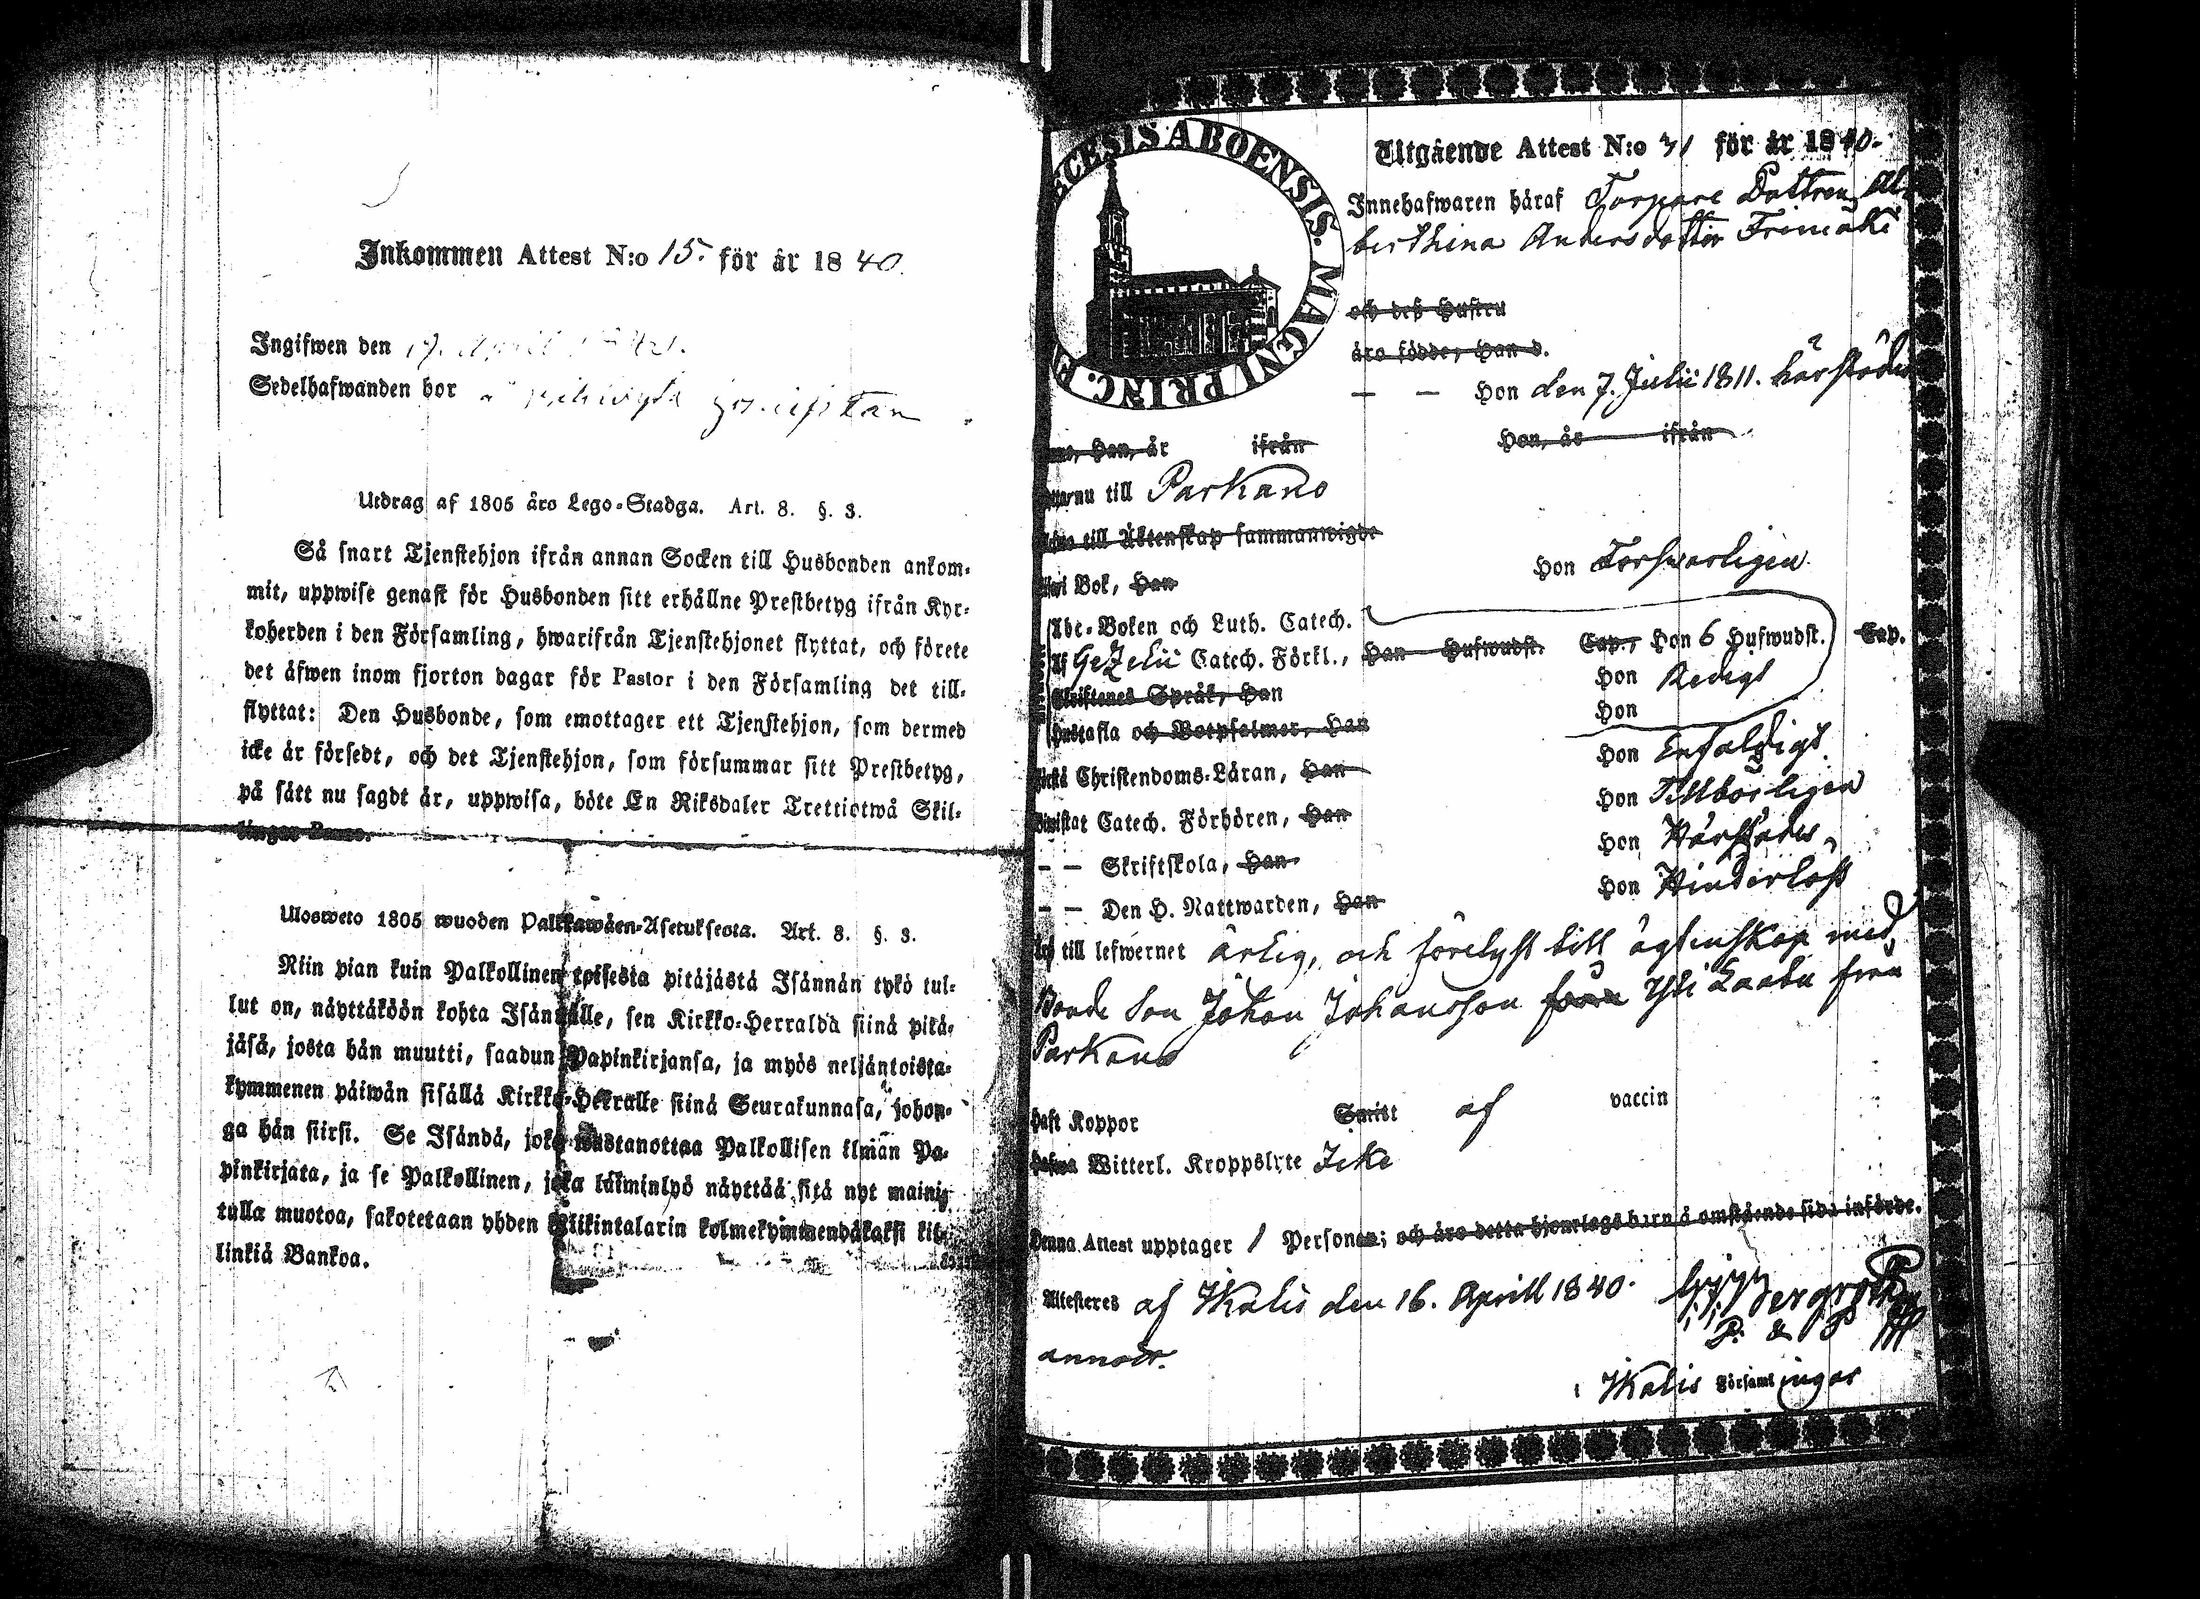 Inkommen Attest N:o 15. för år 1840.
Ingifwen den 17. April
Sedelhafwanden bor
Utdrag af 1805 års Lego-Stadga. Art. 8. §. 3.
Så snart Tjenstehjon ifrån annan Socken till Husbonden ankom-
mit, uppwise genast för Husbonden sitt erhållne Prestbetyg ifrån Kyr-
koherden i den Församling, hwarifrån Tjenstehjonet flyttat, och förete
det äfwen inom fjorton dagar för Pastor i den Församling det till-
flyttat: Den Husbonde, som emottager ett Tjenstehjon, som dermed
icke är försedt, och det Tjenstehjon, som försummar sitt Prestbetyg,
på sätt nu sagdt är, uppwisa, böte En Riksdaler Trettiotwå Skil-
lingar Banco.
Ulosweto 1805 wuoden Palkkawäen-Asetuksesta. Art. 8. §. 3.
Niin pian kuin Palkollinen toisesta pitäjästä Isännän tykö tul-
lut on, näyttäköön kohta Isännälle, sen Kirkko-Herralda siinä pitä-
jäsä, josta hän muutti, saadun Papinkirjansa, ja myös neljäntoista-
kymmenen päiwän sisällä Kirkko-Herralle siinä Seurakunnasa, johon-
ga hän siirsi. Se Isändä, joka wastanottaa Palkollisen ilman Pa-
pinkirjata, ja se Palkollinen, joka laiminlyö näyttää sitä nyt mainit-
tulla muotoa, sakotetaan yhden Riikintalarin kolmekymmendäkaksi kil-
linkiä Bankoa.
ECESIS ABOENSIS. MAGNI PRINC. F
Utgående Attest N:o 31 för år 1840.
Innehafwaren häraf Torpare Dottren Al-
berthina Andersdotter Frimäki
och deß Hustru
äro födde, Han d.
— — Hon den 7. Julii 1811. härstädes
Han, år ifrån Hon, år ifrån
nu till Parkano
till Äktenskap sammanwigde
i Bok, Han Hon Forswarligen
Abc-Boken och Luth. Catech.
Af Gezelii Catech. Förkl., Han Hufwudst. Cap., Hon 6 Hufwudst. Cap.
Skriftenes Språk, Han Hon Redigt
Hustafla och Botpsalmer, Han Hon
Christendoms-Läran, Han Hon Enfaldigt
Bewistat Catech. Förhören, Han Hon Tillbörligen
— — Skriftskola, Han Hon Härstädes
— — Den H. Nattwarden, Han Hon Hinderlöst
till lefwernet ärlig, och förelyst till ägtenskap med
Bonde Son Johan Johansson från Yli Kaabu från
Parkano
haft Koppor Smitt af vaccin
Witterl. Kroppslyte Icke
Denna Attest upptager 1 Personer; och äro detta hjonelags barn å omstående sida införde.
Attesteres af Ikalis den 16. Aprill 1840. Bergroth
P. &
annor.
i Ikalis Församlingar